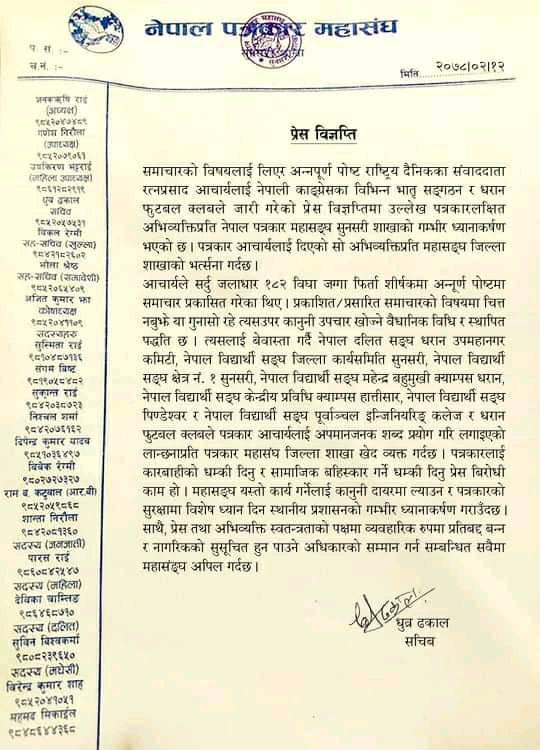 नेपाल पत्रकार महासंघ
प. स. :-
च.नं. :-
मिति..२०७८/०२/१२
जनकऋषि राई
(अध्यक्ष)
९८५२०४७४८९
गणेस निरौला
(उपाध्यक्ष)
९८५२०७१०६१
उपकिरण भट्टराई
(महिला उपाध्यक्ष)
९८६१२८२९१९
ध्रुव ढकाल
सचिव
९८५२०५७५३१
विकल रेग्मी
सह-सचिव (खुल्ला)
९८४२१८२६०२
भोला श्रेष्ठ
सह-सचिव (समावेशी)
९८५२०६५४०९
अजित कुमार झा
कोषाध्यक्ष
९८५२०४११०९
सदस्यहरु
सुस्मिता राई
९८१०४८७१३६
संगम बिष्ट
९८१९०५८४८२
सुकान्त राई
९८४२०३८७२३
निश्चल शर्मा
९८४२०७६१६२
दिपेन्द्र कुमार यादव
९८५१०३६४९७
विवेक रेग्मी
९८०२७२७३२७
राम ब. कटुवाल (आर.बी)
९८५२०५९८६८
शान्ता निरौला
९८४२०८१३६०
सदस्य (जनजाती)
पारस राई
९८६०८४२५४७
सदस्य (महिला)
देविका घाम्लिङ
९८४६४६८७१०
सदस्य (दलित)
सुविन विश्वकर्मा
९८०८२३९६५०
सदस्य (मधेसी)
विरेन्द्र कुमार शाह
९८५२०४१०५१
महमद मिकाईल
९८४८६४४३६८
प्रेस विज्ञप्ति
समाचारको विषयलाई लिएर अन्नपूर्ण पोष्ट राष्ट्रिय दैनिकका संवाददाता
रत्नप्रसाद आचार्यलाई नेपाली काङ्ग्रेसका विभिन्न भातृ सङ्गठन र धरान
फुटबल क्लबले जारी गरेको प्रेस विज्ञप्तिमा उल्लेख पत्रकारलक्षित
अभिव्यक्तिप्रति नेपाल पत्रकार महासङघ सुनसरी शाखाको गम्भीर ध्यानाकर्षण
भएको छ । पत्रकार आचार्यलाई दिएको सो अभिव्यक्तिप्रति महासङघ जिल्ला
शाखाको भर्त्सना गर्दछ ।
आचार्यले सर्दु जलाधार १८२ विघा जग्गा फिर्ता शीर्षकमा अन्नूर्ण पोष्टमा
समाचार प्रकासित गरेका थिए । प्रकाशित/प्रसारित समाचारको विषयमा चित्त
नबुझे या गुनासो रहे त्यसउपर कानुनी उपचार खोज्ने वैधानिक विधि र स्थापित
पद्धति छ । त्यसलाई बेवास्ता गर्दै नेपाल दलित सङ्घ धरान उपमहानगर
कमिटी, नेपाल विद्यार्थी सङ्घ जिल्ला कार्यसमिति सुनसरी, नेपाल विद्यार्थी
सङ्घ क्षेत्र नं. १ सुनसरी, नेपाल विद्यार्थी सङ्घ महेन्द्र बहुमुखी क्याम्पस धरान,
नेपाल विद्यार्थी सङ्घ केन्द्रीय प्रविधि क्याम्पस हात्तीसार, नेपाल विद्यार्थी सङ्घ
पिण्डेश्वर र नेपाल विद्यार्थी सङ्घ पूर्वाञ्चल इन्जिनियरिङ्ग कलेज र धरान
फुटबल क्लबले पत्रकार आचार्यलाई अपमानजनक शब्द प्रयोग गरि लगाइएको
लान्छनाप्रति पत्रकार महासंघ जिल्ला शाखा खेद व्यक्त गर्दछ । पत्रकारलाई
कारबाहीको धम्की दिनु र सामाजिक बहिस्कार गर्ने धम्की दिनु प्रेस बिरोधी
काम हो । महासङ्घ यस्तो कार्य गर्नेलाई कानुनी दायरमा ल्याउन र पत्रकारको
सुरक्षामा विशेष ध्यान दिन स्थानीय प्रशासनको गम्भीर ध्यानाकर्षण गराउँदछ ।
साथै, प्रेस तथा अभिव्यक्ति स्वतन्त्रताको पक्षमा व्यवहारिक रुपमा प्रतिबद्द बन्न
र नागरिकको सुसूचित हुन पाउने अधिकारको सम्मान गर्न सम्बन्धित सवैमा
महासङ्घ अपिल गर्दछ ।
ध्रुव ढकाल
सचिब